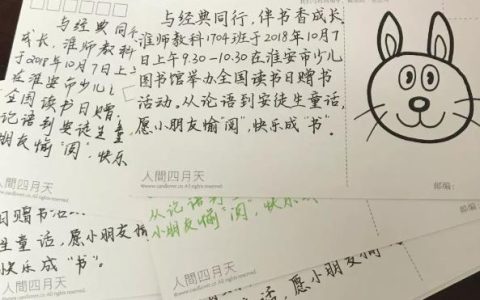 与经典同行,伴书香成长
淮师教科1704班于2018年10月7
日上午9:30-10:30在淮安市少儿
图书馆举办全国读书日赠书
活动。从论语到安徒生童话,
愿小朋友愉"阅",快乐成"书"。
人間四月天
©www.candlover.cn All rights reserved.
邮编:
与经典同行
成长,淮师教科
于2018年10月7日上
在淮安市少儿
全国读书日赠
论语到安徒生童
朋友愉"阅",快乐
人間四月天
日赠书
生童话,愿小朋友愉
快乐成"书"。
从论语到
小朋友愉"阅",快乐
人間四月天
话,愿小朋友愉
邮编: